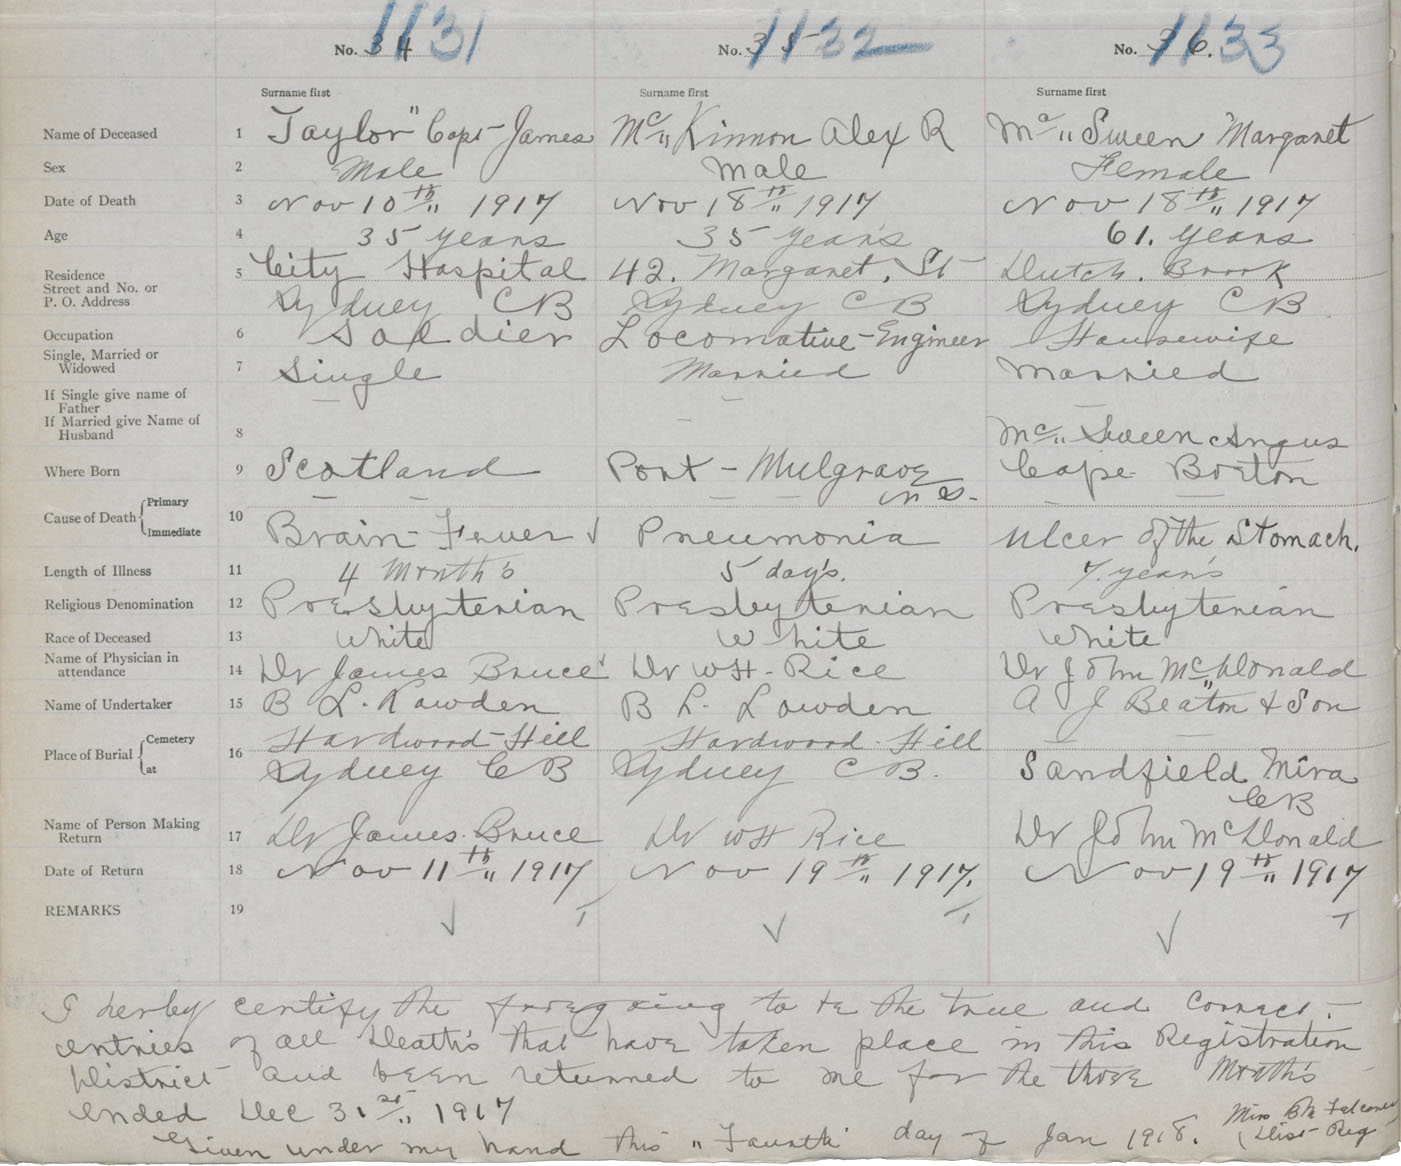 No. 34 1131 No. 35 1132 No. 36. 1133
Surname first Surname first Surname first
Name of Deceased 1 Taylor" Capt James Mc" Kinnon Alex R Mc" Sween Margaret
Sex 2 Male Male Female
Date of Death 3 Nov 10th" 1917 Nov 18th" 1917 Nov 18th" 1917
Age 4 35 years 35 years 61. years
Residence
Street and No. or
P. O. Address 5 City Hospital 42. Margaret. St Dutch. Brook
Sydney CB Sydney CB Sydney CB
Occupation 6 Soldier Locomative-Engineer Housewife
Single, Married or
Widowed 7 Single Married Married
If Single give name of
Father
If Married give Name of
Husband 8 Mc" Sween Angus
Where Born 9 Scotland Port-Mulgrave Cape Breton
N S.
Cause of Death Primary
Immediate 10 Brain-Fever Pneumonia Ulcer of the Stomach.
Length of Illness 11 4 Month's 5 day's. 7. year's
Religious Denomination 12 Presbyterian Presbyterian Presbyterian
Race of Deceased 13 White White White
Name of Physician in
attendance 14 Dr James Bruce Dr WH. Rice Dr John McDonald
Name of Undertaker 15 B L. Lowden B L. Lowden A J Beaton & Son
Place of Burial Cemetery
at 16 Hardwood-Hill Hardwood-Hill
Sydney CB Sydney CB. Sandfield Mira
CB
Name of Person Making
Return 17 Dr James Bruce Dr WH Rice Dr John McDonald
Date of Return 18 Nov 11th" 1917 Nov 19th" 1917. Nov 19th" 1917
REMARKS 19
I herby certify the foregoing to be the true and correct
entries of all Death's that have taken place in this Registration
District and been returned to me for the three Month's
ended Dec 31st" 1917
Given under my hand this "Fourth" day of Jan 1918. Miss Falconer
Dist-Reg